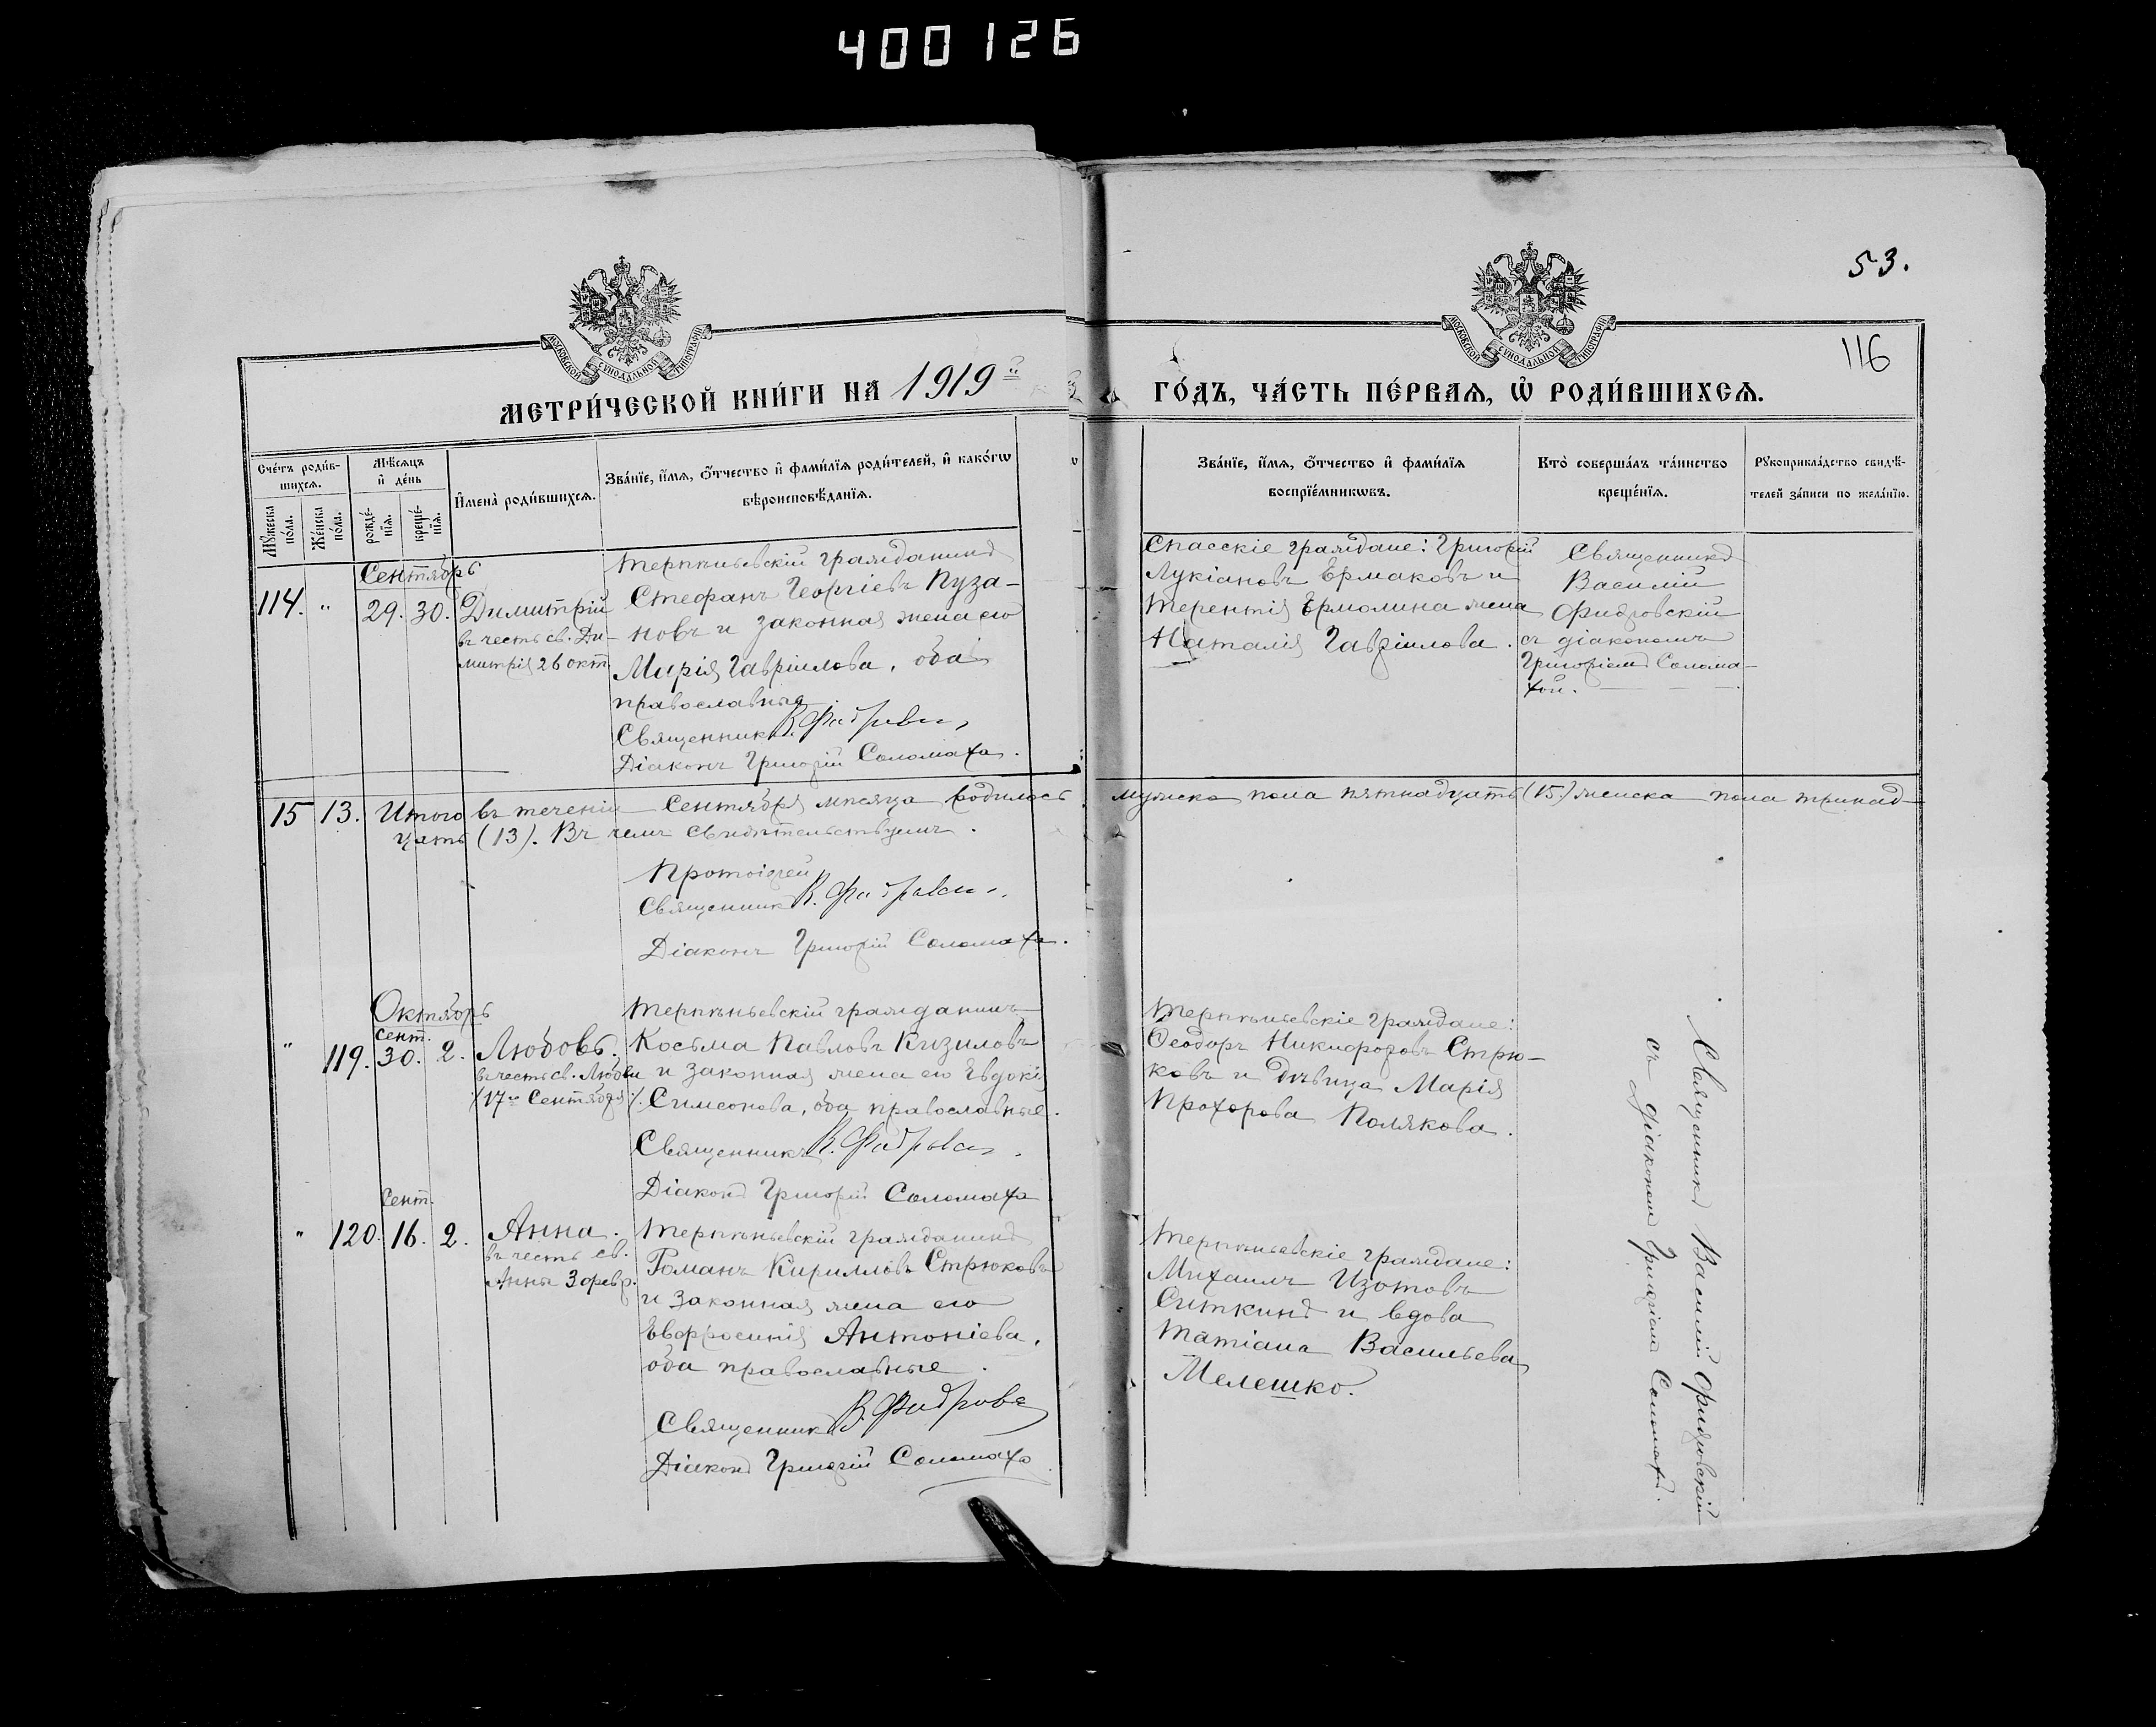 400126
53.
116
МОСКОВСКОЙ СУНОДАЛЬНОЙ ТИПОГРАФІИ
МОСКОВСКОЙ СУНОДАЛЬНОЙ ТИПОГРАФІИ
МЕТРИ́ЧЕСКОЙ КНИ́ГИ НА 1919й
ГО́ДЪ, ЧА́СТЬ ПЕ́РВАЯ, Ѽ РОДИ́ВШИХСЯ.
Сче́тъ роди́в-
шихся.
Мѣ́сяцъ
и҆ де́нь
Му́жеска по́ла.
Же́нска по́ла.
рожде́-
нїя.
креще́-
нїя.
И҆мена̀ роди́вшихся.
Зва́нїе, и҆́мя, ѻ҆́тчество и҆ фами́лїя роди́телей, и҆ како́гѡ
вѣроисповѣ́данїя.
Зва́нїе, и҆́мя, ѻ҆́тчество и҆ фами́лїя
воспрїе́мникѡвъ.
Кто̀ соверша́лъ та́инство
креще́нїя.
Рукоприкла́дство свидѣ́-
телей за́писи по жела́нїю.
Сентябрь
114. " 29. 30.
Димитрій
въ честь св. Ди-
митрія 26 окт.
Терпѣньевскій гражданинъ
Стефанъ Георгіевъ Пуза-
новъ и законная жена его
Марія Гавріилова, оба
православные
Священникъ
Діаконъ Григорій Соломаха.
Спасскіе граждане: Григорій
Лукіановъ Ермаковъ и
Терентія Ермолина жена
Наталія Гавріилова.
Священникъ
Василій
Фидровскій
съ діакономъ
Григоріемъ Солома-
хой.
15 13. Итого въ теченіи сентября мѣсяца родилось мужска пола пятнадцать (15) женска пола тринад-
цать (13). Въ чемъ свидѣтельствуемъ.
Протоіерей
Священникъ
Діаконъ Григорій Соломаха.
Октябрь
сент.
" 119. 30. 2.
Любовь.
въ честь св. Любви
/17го Сентября/.
Терпѣньевскій гражданинъ
Косьма Павловъ Кизиловъ
и законная жена его Евдокія
Симеонова, оба православные.
Священникъ
Діаконъ Григорій Соломаха
Терпѣньевскіе граждане:
Ѳеодоръ Никифоровъ Стрю-
ковъ и дѣвица Марія
Прохорова Полякова.
сент.
" 120. 16. 2.
Анна.
въ честь св.
Анны 3 февр.
Терпѣньевскій гражданинъ
Романъ Кирилловъ Стрюковъ
и законная жена его
Евфросинія Антоніева,
оба православные.
Священникъ
Діаконъ Григорій Соломаха
Терпѣньевскіе граждане:
Михаилъ Изотовъ
Ситкинъ и вдова
Татіана Васильева
Мелешко.
Священникъ Василій Фидровскій
съ діакономъ Григоріемъ Соломахой.